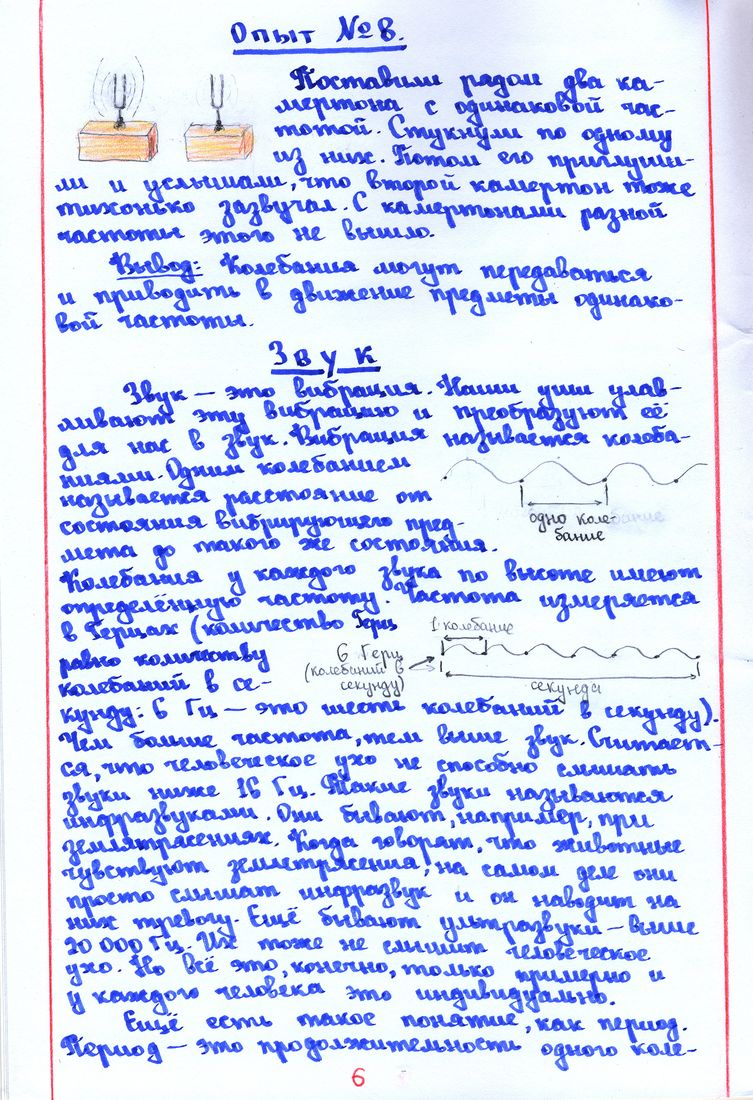 Опыт №8.
Поставили рядом два ка-
мертона с одинаковой час-
тотой. Стукнули по одному
из них. Потом его приглуши-
ли и услышали, что второй камертон тоже
тихонько зазвучал. С камертонами разной
частоты этого не вышло.
Вывод: Колебания могут передаваться
и приводить в движение предметы одинако-
вой частоты.
Звук
Звук — это вибрация. Наши уши улав-
ливают эту вибрацию и преобразуют её
для нас в звук. Вибрация называется колеба-
ниями. Одним колебанием
называется расстояние от
состояния вибрирующего пред-
мета до такого же состояния.
одно коле-
бание
Колебания у каждого звука по высоте имеют
определённую частоту. Частота измеряется
в Герцах (количество Герц
равно количеству
колебаний в се-
1 колебание
6 Герц
(колебаний в
секунду)
секунда
кунду: 6 Гц — это шесть колебаний в секунду).
Чем больше частота, тем выше звук. Считает-
ся, что человеческое ухо не способно слышать
звуки ниже 16 Гц. Такие звуки называются
инфразвуками. Они бывают, например, при
землятрясениях. Когда говорят, что животные
чувствуют землетрясения, на самом деле они
просто слышат инфразвук и он наводит на
них тревогу. Ещё бывают ультразвуки — выше
20 000 Гц. Их тоже не слышит человеческое
ухо. Но всё это, конечно, только примерно и
у каждого человека это индивидуально.
Ещё есть такое понятие, как период.
Период — это продолжительность одного коле-
6